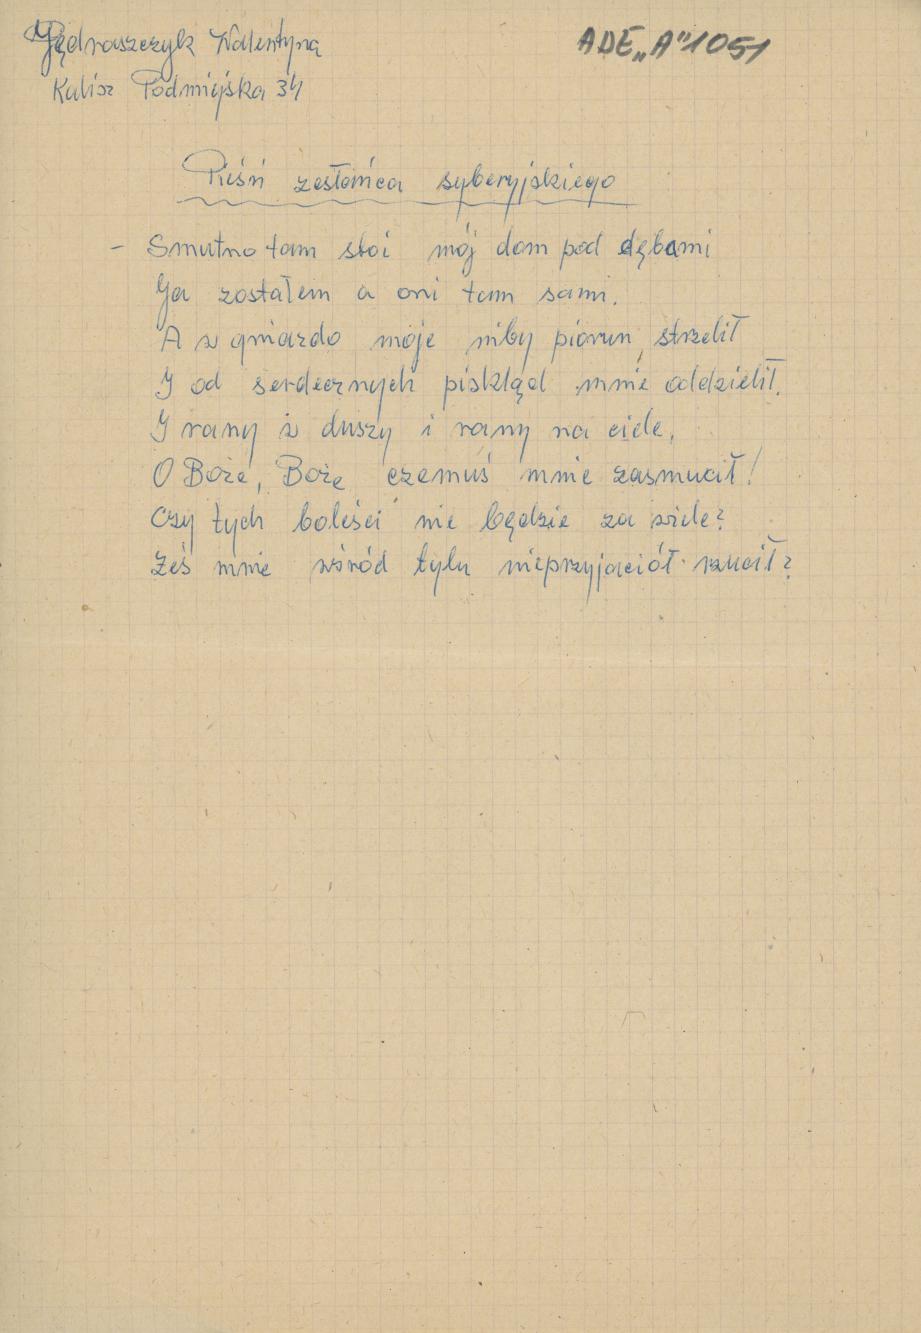 Jędraszczyk Walentyna
ADE „A" 1051
Kalisz Podmiejska 34
Pieśń zesłańca syberyjskiego
- Smutno tam stoi mój dom pod dębami
Ja zostałem a oni tam sami.
A w gniazdo moje niby piorun strzelił
I od serdecznych piskląd mnie oddzielił.
I rany w duszy i rany na ciele,
O Boże, Boże czemuś mnie zasmucił!
Czy tych boleści nie będzie za wiele?
Żeś mnie wśród tylu nieprzyjaciół rzucił?